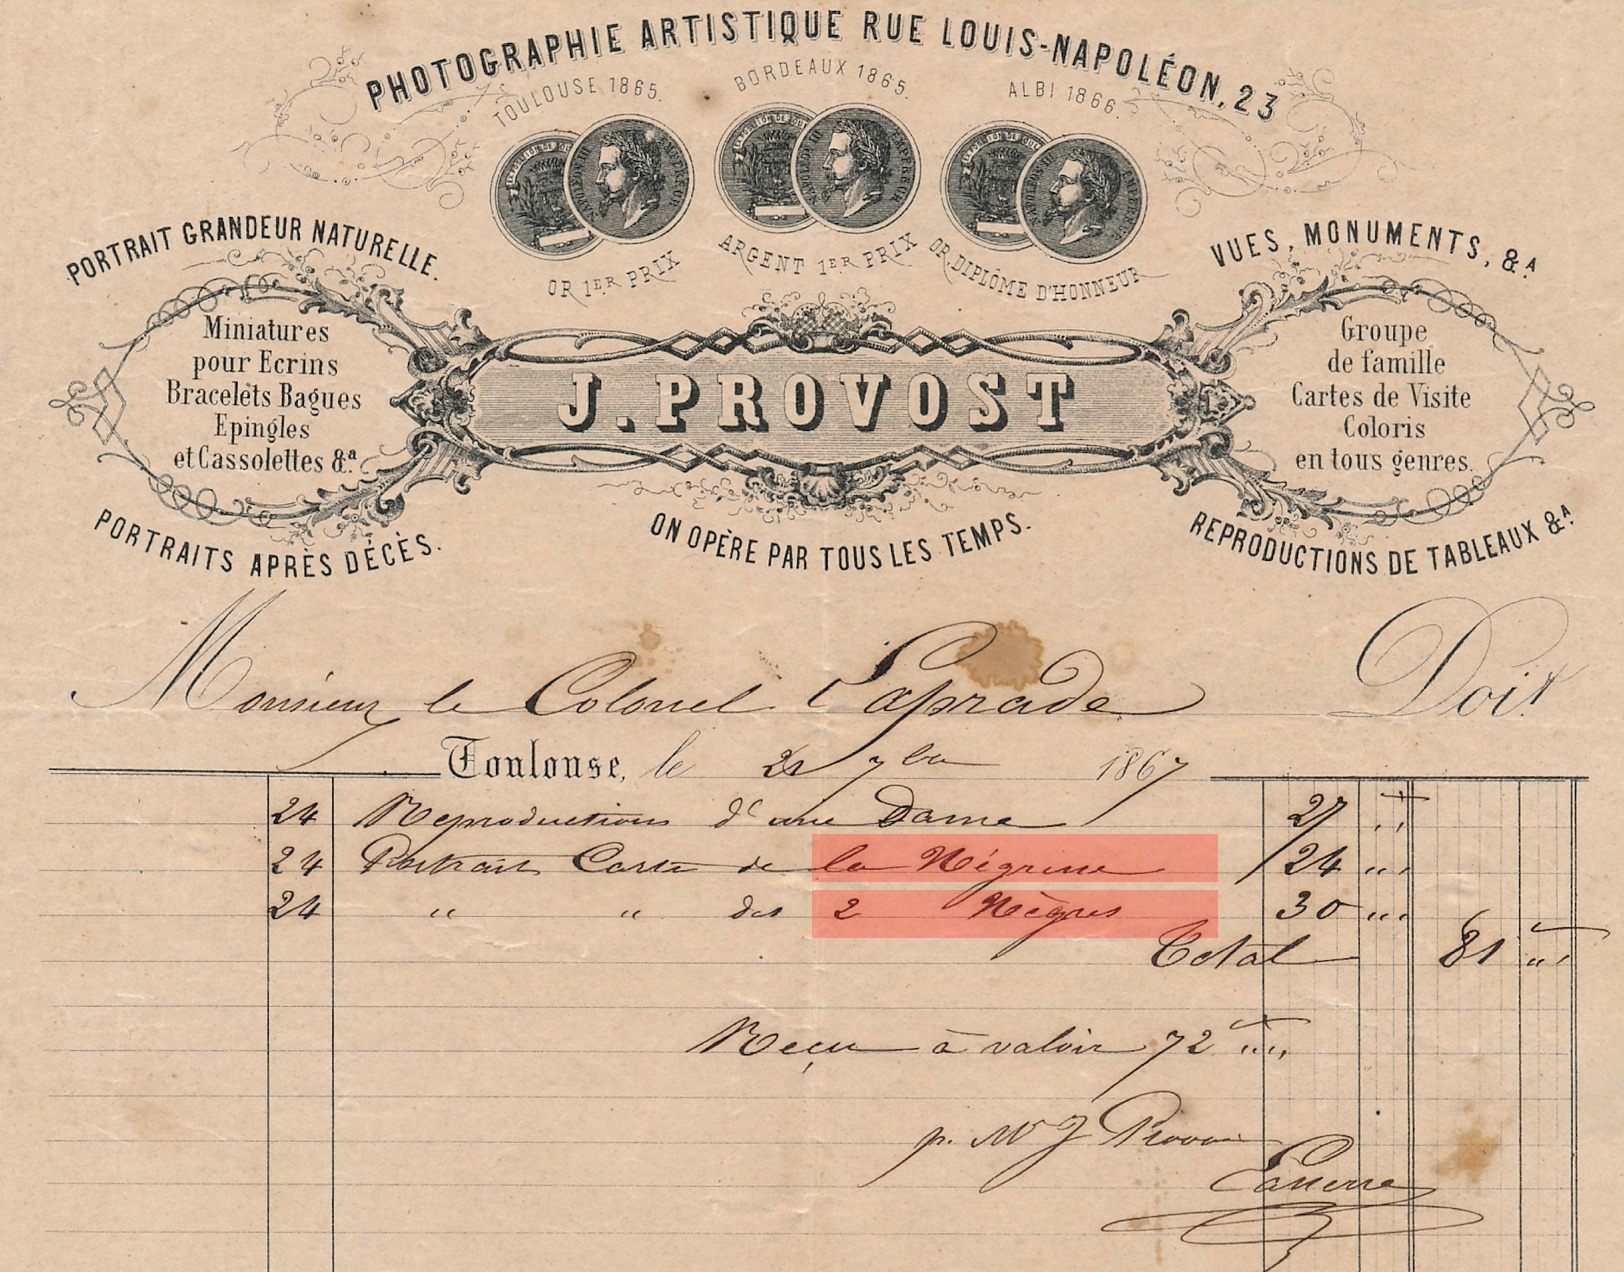 PHOTOGRAPHIE ARTISTIQUE RUE LOUIS-NAPOLÉON, 23
TOULOUSE 1865.
BORDEAUX 1865.
ALBI 1866.
NAPOLEON III EMPEREUR
NAPOLEON III EMPEREUR
NAPOLEON III EMPEREUR
OR 1ER PRIX
ARGENT 1ER PRIX
OR DIPLÔME D'HONNEUR
PORTRAIT GRANDEUR NATURELLE.
VUES, MONUMENTS, &.A
Miniatures
pour Ecrins
Bracelets Bagues
Epingles
et Cassolettes &.a
J. PROVOST
Groupe
de famille
Cartes de Visite
Coloris
en tous genres.
PORTRAITS APRÈS DÉCÈS.
ON OPÈRE PAR TOUS LES TEMPS.
REPRODUCTIONS DE TABLEAUX &.A
Monsieur le Colonel Laprade Doit
Toulouse, le 21 7bre 1867
24 Reproductions d'une Dame 27 "
24 Portrait Carte de la Négrine 24 "
24 " " des 2 Nègres 30 "
Total 81 "
Reçu à valoir 72 "
p. Mr J Provost